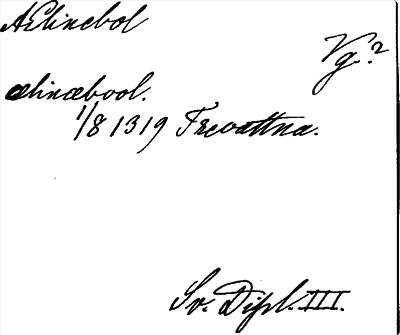 Ælinebol
Vg.?
ælinæbool.
1/8 1319 Trevattna.
Sv. Dipl. III.